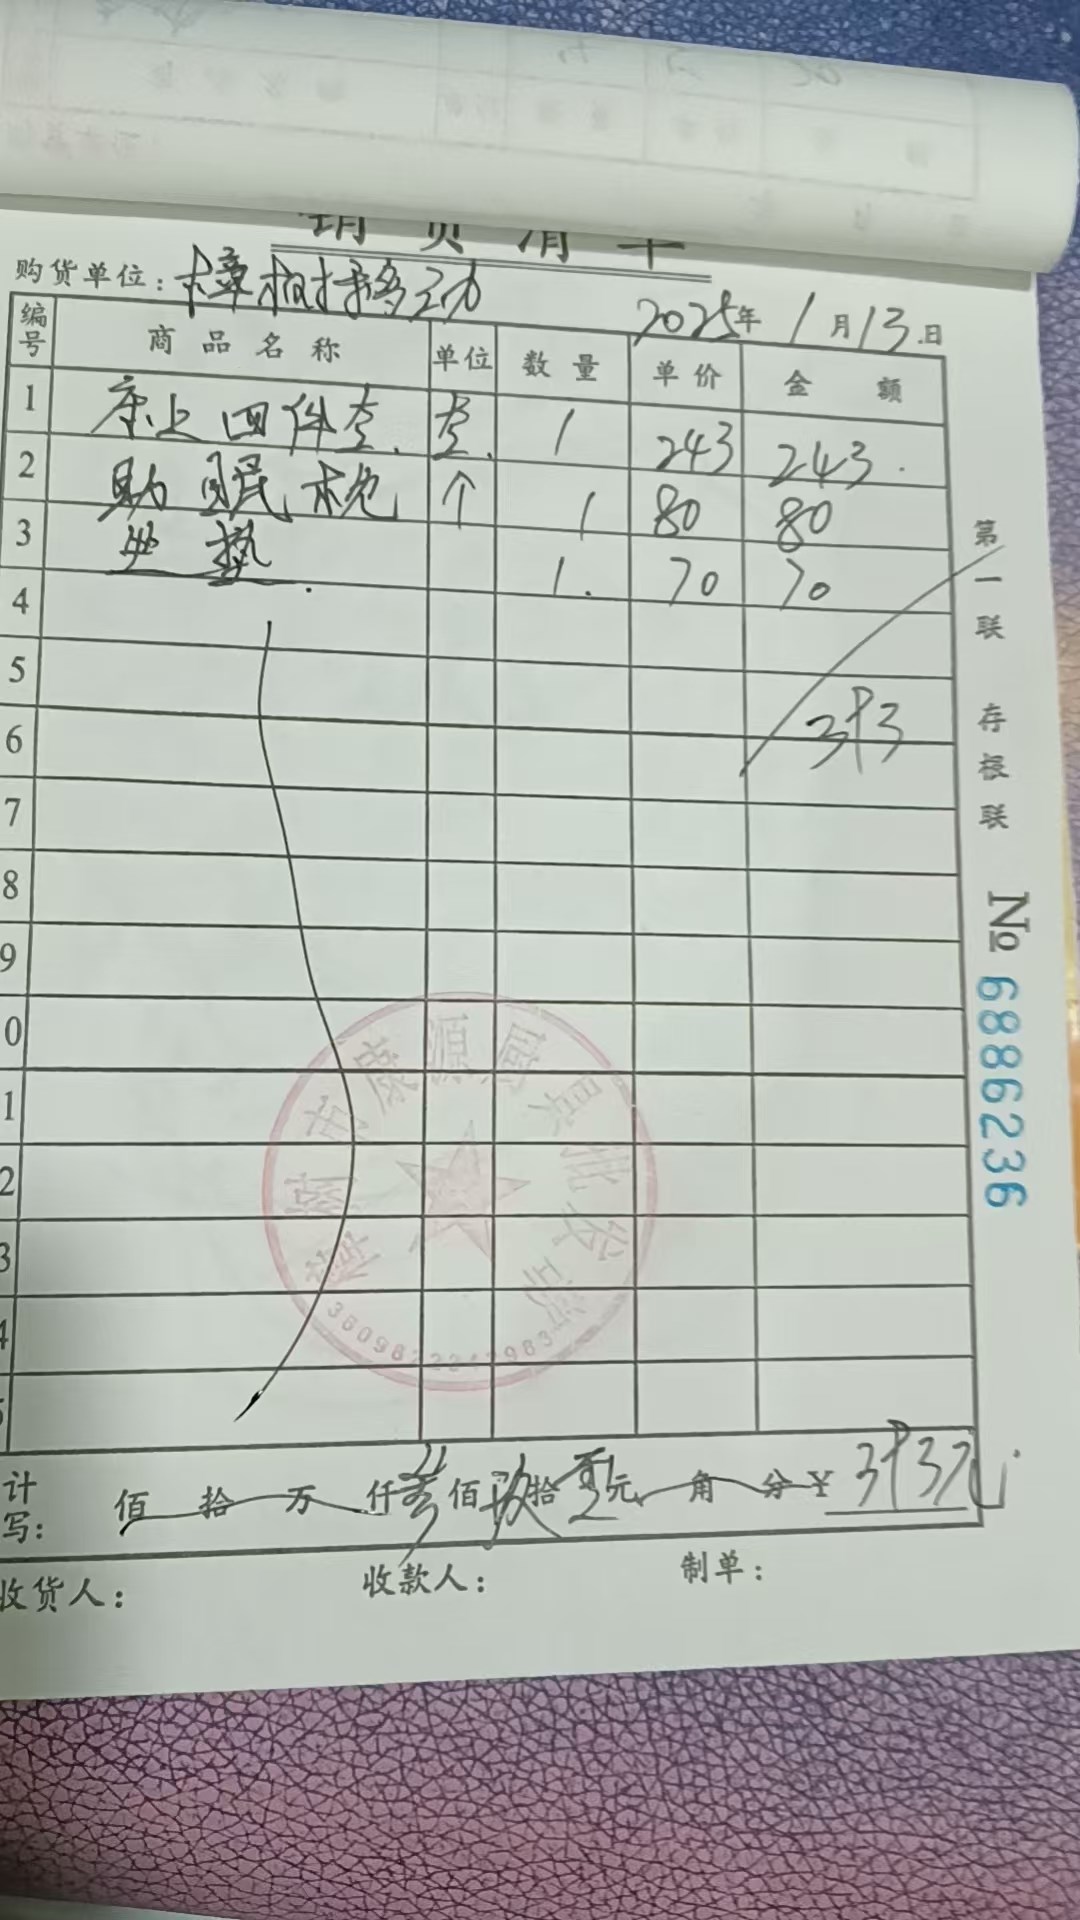 销货清单
购货单位：樟树移动
2025年1月13日
编号 商品名称 单位 数量 单价 金额
1 床上四件套 套 1 243 243
2 助眠枕 个 1 80 80
3 坐垫 1 70 70
4
5
6 393
7
8
9
0
1
2
3
4
5
计写：佰拾万仟叁佰玖拾叁元角分￥393元
收货人： 收款人： 制单：
第一联 存根联
№ 6886236
樟树市康源厨具批发部